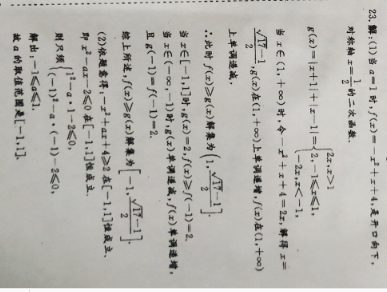 23.解:(1)当 a=1 时,f(x)=-x²+x+4,是开口向下,
对称轴 x=1/2 的二次函数.
g(x)=|x+1|+|x-1|={2x,x>1
2,-1≤x≤1,
-2x,x<-1,
当 x∈(1,+∞)时,令-x²+x+4=2x,解得 x=
(√17-1)/2,g(x)在(1,+∞)上单调递增,f(x)在(1,+∞)
上单调递减,
∴此时 f(x)≥g(x)解集为(1,(√17-1)/2].
当 x∈[-1,1]时,g(x)=2,f(x)≥f(-1)=2.
当 x∈(-∞,-1)时,g(x)单调递减,f(x)单调递增,
且 g(-1)=f(-1)=2.
综上所述,f(x)≥g(x)解集为[-1,(√17-1)/2].
(2)依题意得:-x²+ax+4≥2 在[-1,1]恒成立.
即 x²-ax-2≤0 在[-1,1]恒成立.
则只须{1²-a·1-2≤0,
(-1)²-a·(-1)-2≤0,
解出:-1≤a≤1.
故 a 的取值范围是[-1,1].